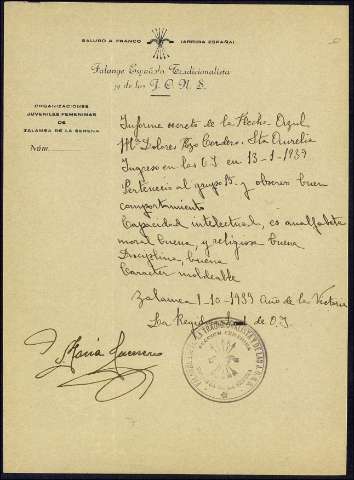 SALUDO A FRANCO ¡ARRIBA ESPAÑA!
Falange Española Tradicionalista
y de las J. O. N. S.
ORGANIZACIONES
JUVENILES FEMENINAS
DE
ZALAMEA DE LA SERENA
Núm.
Informe secreto de la Flecha Azul
Mª Dolores Cordero, Sta Aurelia
Ingreso en las O J en 13-1-1939
Pertenecio al grupo B y observo buen
comportamiento
Capacidad intelectual, es analfabeta
moral buena, y religiosa buena
Disciplina, buena
Caracter moldeable
Zalamea 1-10-1939 Año de la Victoria
La Regidora de O.J.
Maria